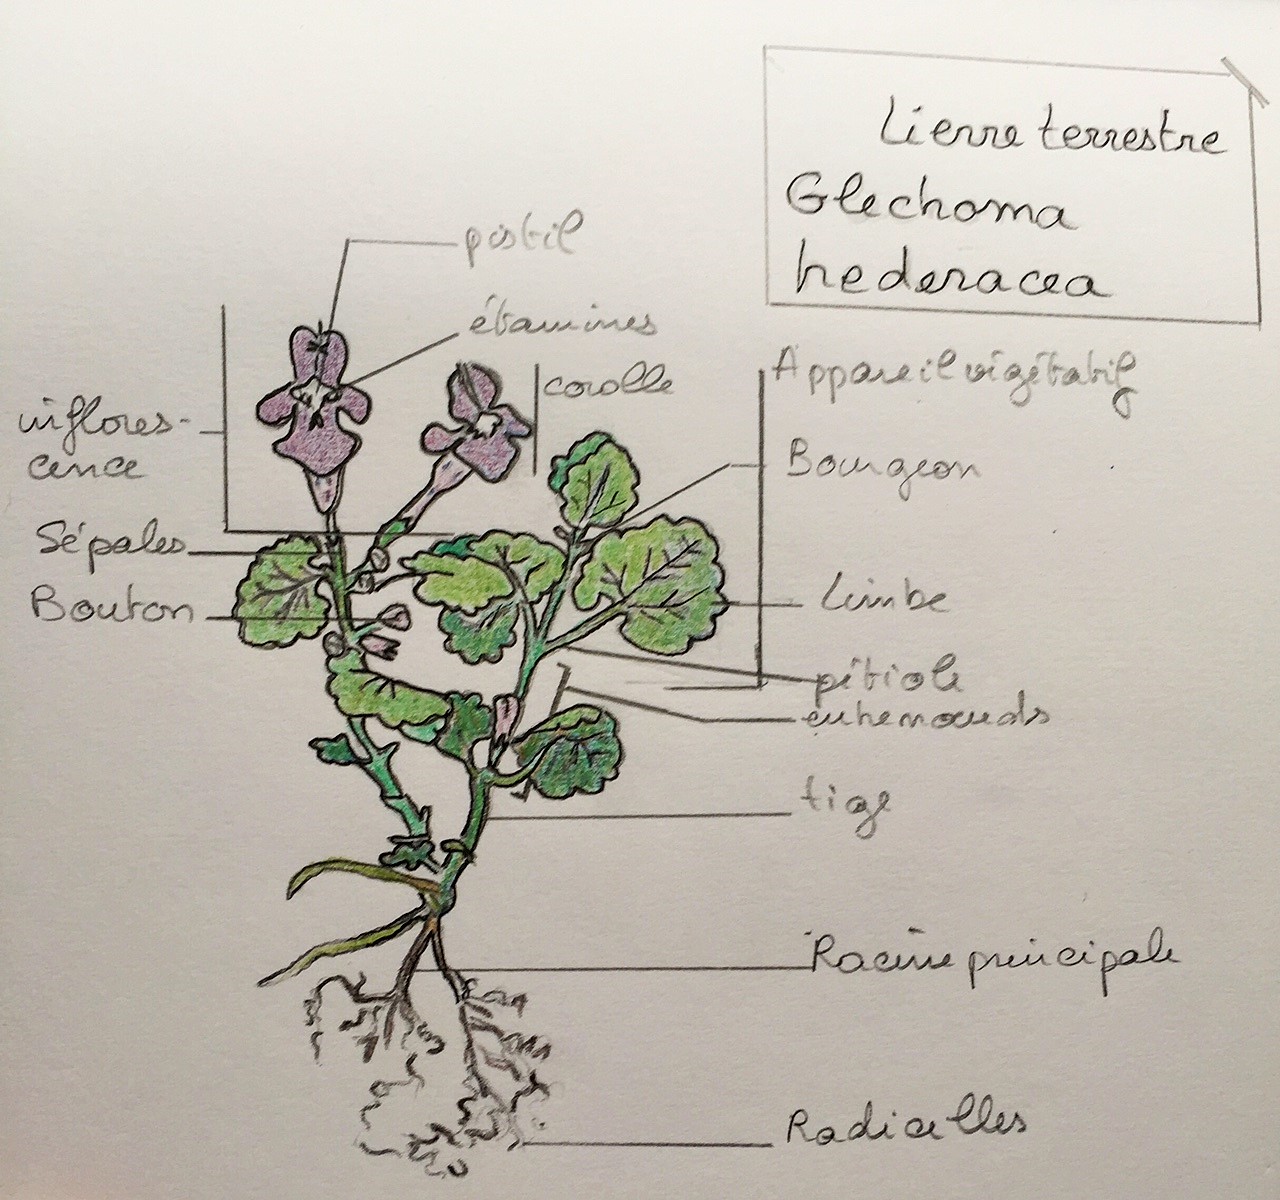 Lierre terrestre
Glechoma
hederacea
pistil
étamines
corolle
Appareil végétatif
inflores-
cence
Bourgeon
Sépales
Bouton
Limbe
pétiole
entrenoeuds
tige
Racine principale
Radicelles